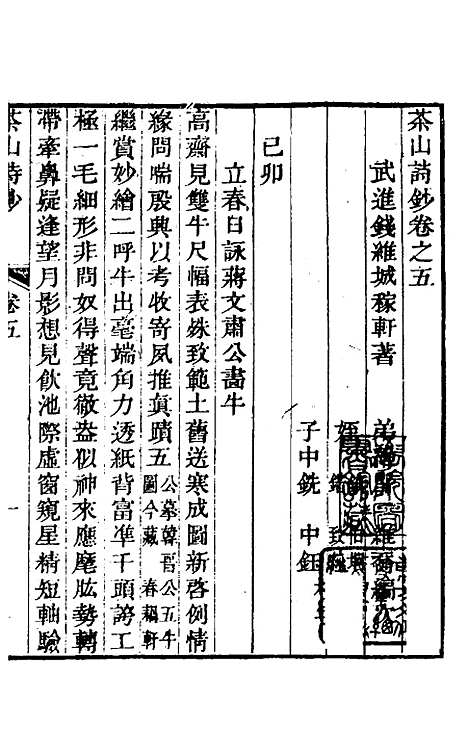 茶山詩鈔卷之五
武進錢維城稼軒著
弟維喬編
姪
致純
子中銑 中鈺
己卯
立春日詠蔣文肅公畵牛
高齋見雙牛尺幅表姝致範土舊送寒成圖新啓例情
緣問喘殷典以考收寄夙推眞蹟五公摹韓晉公五牛圖今藏春耦軒
繼賞妙繪二呼牛出毫端角力透紙背富準千頭誇工
極一毛細形非問奴得聲竟徹盎似神來應麾肱勢轉
帶牽鼻疑逢望月影想見飮池際虛窗窺星精短軸驗
茶山詩鈔 卷五 一